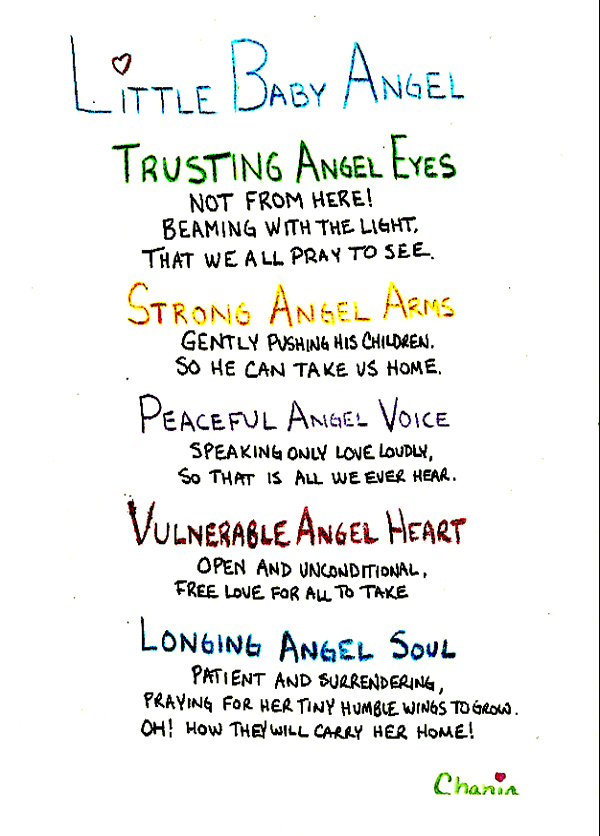 LITTLE BABY ANGEL
TRUSTING ANGEL EYES
NOT FROM HERE!
BEAMING WITH THE LIGHT,
THAT WE ALL PRAY TO SEE.
STRONG ANGEL ARMS
GENTLY PUSHING HIS CHILDREN.
SO HE CAN TAKE US HOME.
PEACEFUL ANGEL VOICE
SPEAKING ONLY LOVE LOUDLY,
SO THAT IS ALL WE EVER HEAR.
VULNERABLE ANGEL HEART
OPEN AND UNCONDITIONAL,
FREE LOVE FOR ALL TO TAKE
LONGING ANGEL SOUL
PATIENT AND SURRENDERING,
PRAYING FOR HER TINY HUMBLE WINGS TO GROW.
OH! HOW THEY WILL CARRY HER HOME!
Chanin